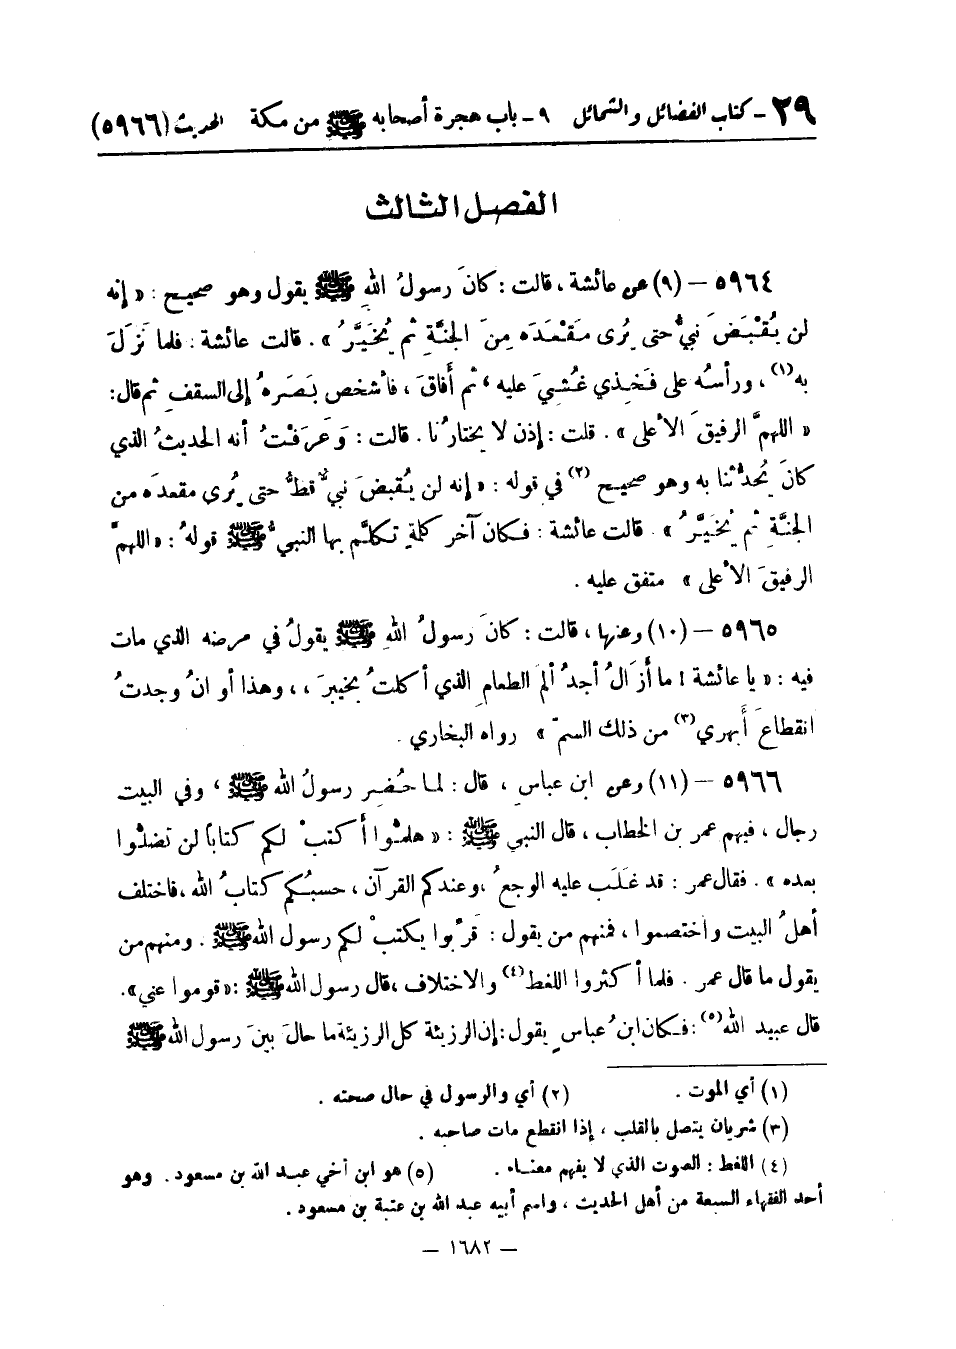 ٢٩ - كتاب الفضائل والشمائل ٩ - باب هجرة أصحابه ﷺ من مكة الحديث (٥٩٦٦)
الفصل الثالث
٥٩٦٤ - (٩) عن عائشة ، قالت : كانَ رسولُ اللهِ ﷺ يقول وهو صحيح : « إنه
لن يُقْبَضَ نبيٌّ حتى يُرى مَقْعَدَه مِنَ الجنَّةِ ثم يُخَيَّرُ » . قالت عائشة : فلما نَزَلَ
به(١) ، ورأسُه على فَخِذي غُشِيَ عليه ، ثم أَفاقَ ، فأشخص بَصَرَهُ إلى السقفِ ثم قال :
« اللهمَّ الرفيقَ الأعلى » . قلت : إذن لا يختارُنا . قالت : وَعَرَفْتُ أنه الحديثُ الذي
كانَ يُحدِّثنا به وهو صحيح(٢) في قوله : « إنه لن يُقبضَ نبيٌّ قطُّ حتى يُرى مقعدَه من
الجنَّةِ ثم يُخَيَّرُ » . قالت عائشة : فكان آخر كلمةٍ تكلَّم بها النبيُّ ﷺ قولهُ : « اللهمَّ
الرفيقَ الأعلى » متفق عليه .
٥٩٦٥ - (١٠) وعنها ، قالت : كانَ رسولُ اللهِ ﷺ يقولُ في مرضه الذي مات
فيه : « يا عائشة ! ما أزالُ أجدُ ألمَ الطعامِ الذي أكلتُ بخيبرَ ، ، وهذا أوانُ وجدتُ
انقطاعَ أَبهري(٣) من ذلك السمّ » رواه البخاري .
٥٩٦٦ - (١١) وعن ابن عباسٍ ، قال : لما حُضِر رسولُ الله ﷺ ، وفي البيت
رجال ، فيهم عمر بن الخطاب ، قال النبي ﷺ : « هلمُّوا أكتبْ لكم كتاباً لن تضلُّوا
بعده » . فقال عمر : قد غَلَب عليه الوجعُ ، وعندكم القرآن ، حسبُكم كتابُ الله ، فاختلف
أهلُ البيت واختصموا ، فمنهم من يقول : قَرِّبوا يكتبْ لكم رسول الله ﷺ . ومنهم من
يقول ما قال عمر . فلما أكثروا اللغط(٤) والاختلاف ، قال رسول الله ﷺ : « قوموا عني » .
قال عبيد الله(٥) : فكان ابنُ عباسٍ يقول : إن الرزيئة كل الرزيئة ما حالَ بينَ رسول الله ﷺ
(١) أي الموت . (٢) أي والرسول في حال صحته .
(٣) شريان يتصل بالقلب ، إذا انقطع مات صاحبه .
(٤) اللغط : الصوت الذي لا يفهم معناه . (٥) هو ابن أخي عبد الله بن مسعود . وهو
أحد الفقهاء السبعة من أهل الحديث ، واسم أبيه عبد الله بن عتبة بن مسعود .
- ١٦٨٢ -